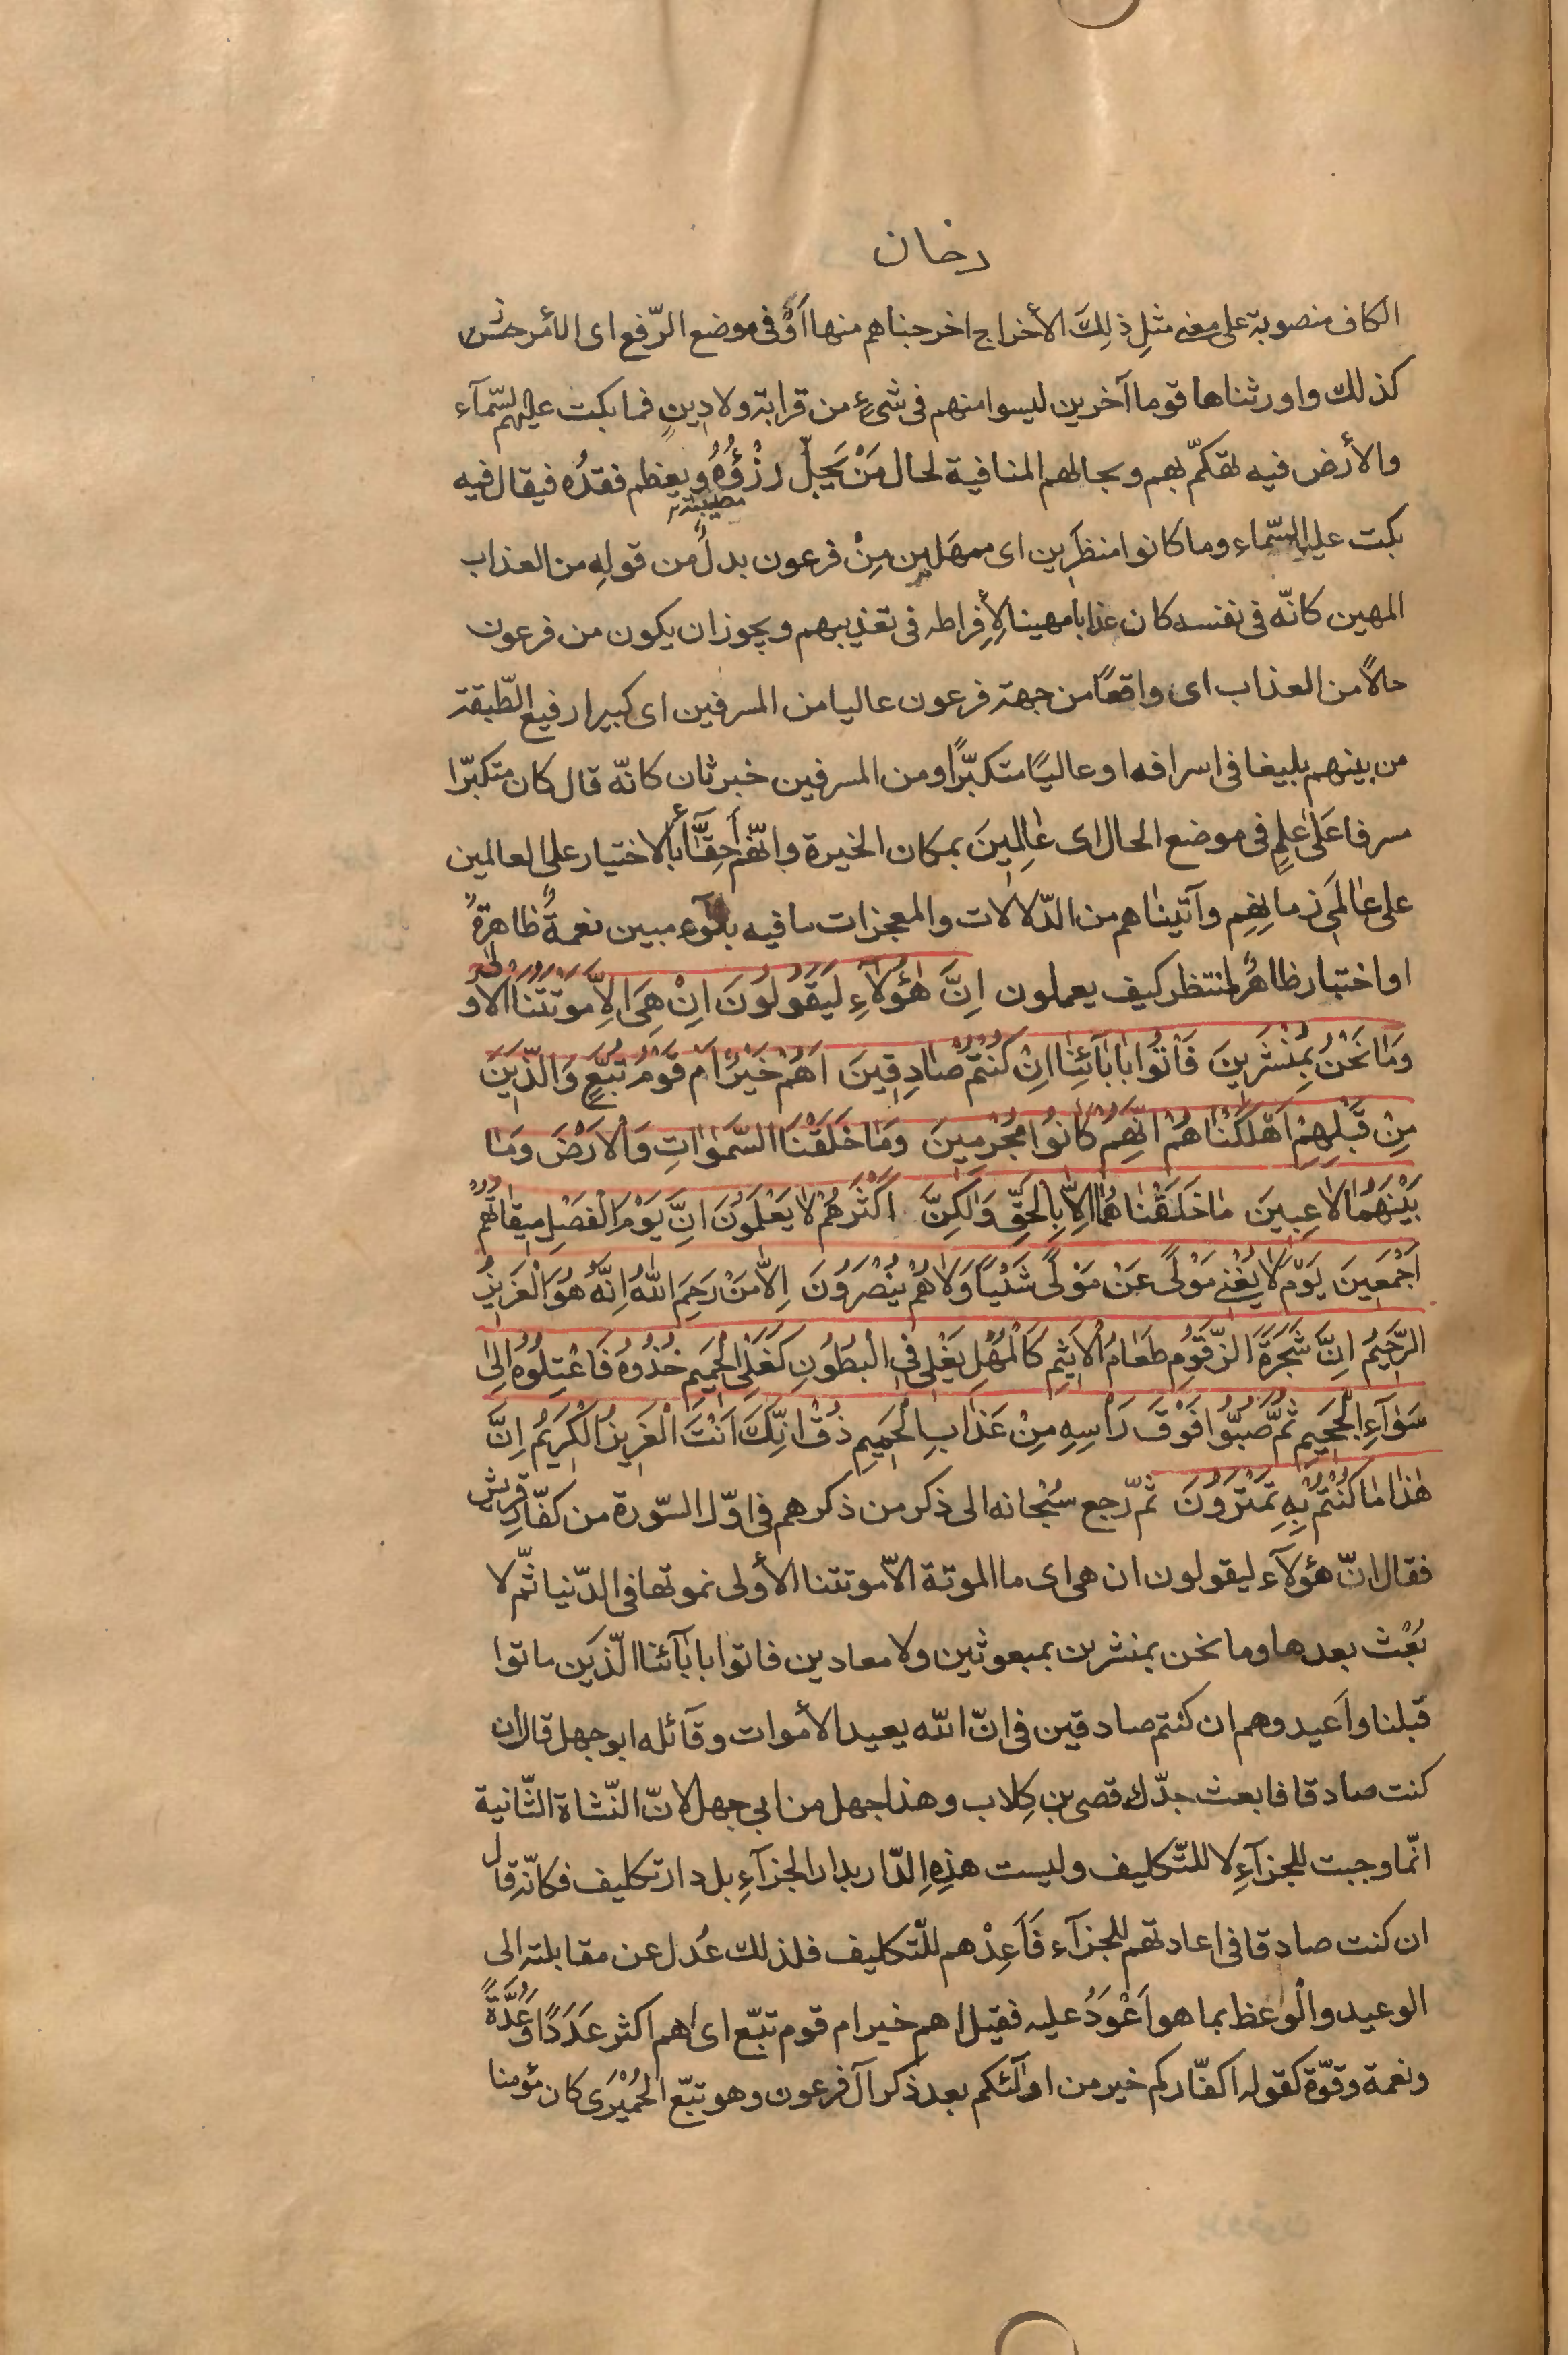 دخان
الكاف منصوبة على معنى مثلِ ذٰلِكَ الأخراج اخرجناهم منها اَوْ فى موضع الرّفع اى الأمر
كذلك واورثناها قوما آخرين ليسوا منهم فى شىءٍ من قرابة ولا دينٍ فما بكت عليهم السّمآء
والأرض فيه تهكّم بهم وبحالهم المنافية لحال مَنْ يَجِلّ رُزْؤُهُ ويعظم فقدُه فيقال فيه
مصيبته
بكت عليه السّماء وما كانوا منظَرين اى ممهَلين مِنْ فرعون بدلٌ من قولهِ من العذاب
المهين كانّه فى نفسه كان عذابا مهينا لِأِفراطه فى تعذيبهم ويجوز ان يكون من فرعون
حالاً من العذاب اى واقعًا من جهة فرعون عاليا من المسرفين اى كبيرا رفيع الطّبقة
من بينهم بليغا فى اسرافه او عاليًا متكبّرًا ومن المسرفين خبر ثان كانّه قال كان متكبّرا
مسرفا عَلٰى عِلمٍ فى موضع الحال اى عٰالِمينَ بمكان الخيرة وانّهم أحِقّآء بالاختيار على العالمين
على عٰالَمى زمانِهِم وآتيناهم من الدّلالات والمعجزات ما فيه بلآء مبين نعمةً ظاهرةً
او اختبار ظاهرٌ لننظر كيف يعملون اِنَّ هٰؤُلآءِ لَيَقُولُونَ اِنْ هِىَ اِلاّٰ مَوْتَتُنَا الاُولىٰ
وَمٰا نَحْنُ بِمُنْشَرينَ فَأْتُوا بِاٰبٰآئِنٰا اِنْ كُنْتُمْ صٰادِقينَ اَهُمْ خَيْرٌ اَمْ قَوْمُ تُبَّعٍ وَالَّذينَ
مِنْ قَبْلِهِمْ اَهْلَكْنٰاهُمْ اِنَّهُمْ كٰانُوا مُجْرِمينَ وَمٰا خَلَقْنَا السَّمٰوٰاتِ وَالْاَرْضَ وَمٰا
بَيْنَهُمٰا لاٰعِبينَ مٰا خَلَقْنٰاهُمٰا اِلاّٰ بِالْحَقِّ وَلٰكِنَّ اَكْثَرَهُمْ لاٰ يَعْلَمُونَ اِنَّ يَوْمَ الْفَصْلِ ميقٰاتُهُمْ
اَجْمَعينَ يَوْمَ لاٰ يُغْنى مَوْلىً عَنْ مَوْلىً شَيْئاً وَلاٰ هُمْ يُنْصَرُونَ اِلاّٰ مَنْ رَحِمَ اللّٰهُ اِنَّهُ هُوَ الْعَزيزُ
الرَّحيمُ اِنَّ شَجَرَةَ الزَّقُّومِ طَعٰامُ الْاَثيمِ كَالْمُهْلِ يَغْلى فِى الْبُطُونِ كَغَلْىِ الْحَميمِ خُذُوهُ فَاعْتِلُوهُ اِلىٰ
سَوٰآءِ الْجَحيمِ ثُمَّ صُبُّوا فَوْقَ رَأْسِهِ مِنْ عَذٰابِ الْحَميمِ ذُقْ اِنَّكَ اَنْتَ الْعَزيزُ الْكَريمُ اِنَّ
هٰذٰا مٰا كُنْتُمْ بِهِ تَمْتَرُونَ ثمّ رجع سُبْحانه الى ذكر من ذكرهم فى اوّل السّورة من كفّار قريش
فقال انّ هؤلآء ليقولون ان هى اى ما الموتة الاّ موتتنا الأولى نموتها فى الدّنيا ثمّ لا
بَعْث بعدها وما نحن بمنشرين بمبعوثين ولا معادين فاتوا بابٰآئنا الّذين ماتوا
قبلنا واَعيدوهم ان كنتم صادقين فى انّ اللّه يعيد الأموات وقآئله ابو جهل قال ان
كنت صادقا فابعث جدّك قصى بن كِلاب وهذا جهل من ابى جهل لانّ النّشاة الثّانية
انّما وجبت للجزآءِ لا للتّكليف وليست هذِهِ الدّار بدار الجزآءِ بل دار تكليف فكانّه قال
ان كنت صادقا فى اعادتهم للجزآء فَاَعِدْهم للتّكليف فلذلك عُدل عن مقابلته الى
الوعيد والْوَعظ بما هو اَعْوَدُ عليه فقيل اهم خير ام قوم تبّع اى اهم اكثر عَدَدًا وَعُدَّةً
ونعمة وقوّة كقوله اكفّاركم خير من اولٰئكم بعد ذكر آل فرعون وهو تبّع الْحِمْيَرى كان مؤمنا